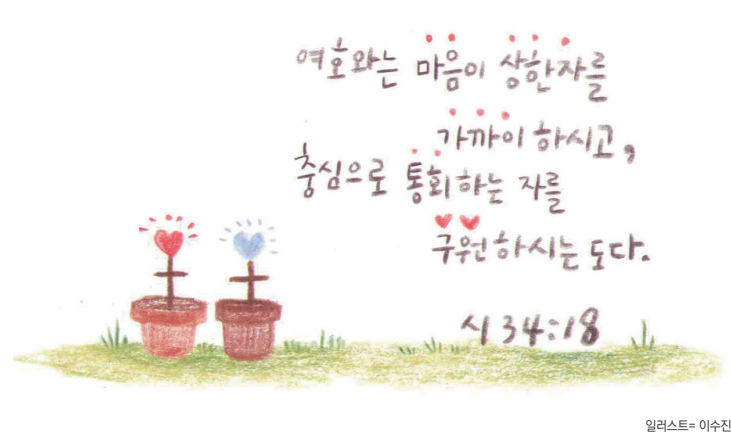 여호와는 마음이 상한자를
가까이 하시고,
충심으로 통회하는 자를
구원하시는도다.
시 34:18
일러스트= 이수진